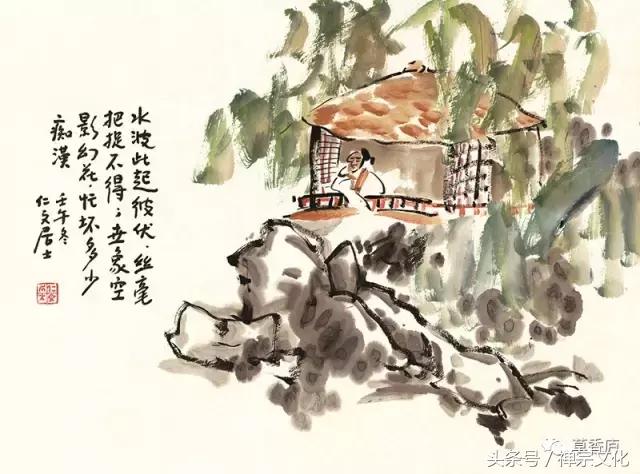 水波此起彼伏,丝毫
把捉不得;世象空
影幻花,忙坏多少
痴漢 壬午冬
仁文居士
草香庐
头条号/禅宗文化